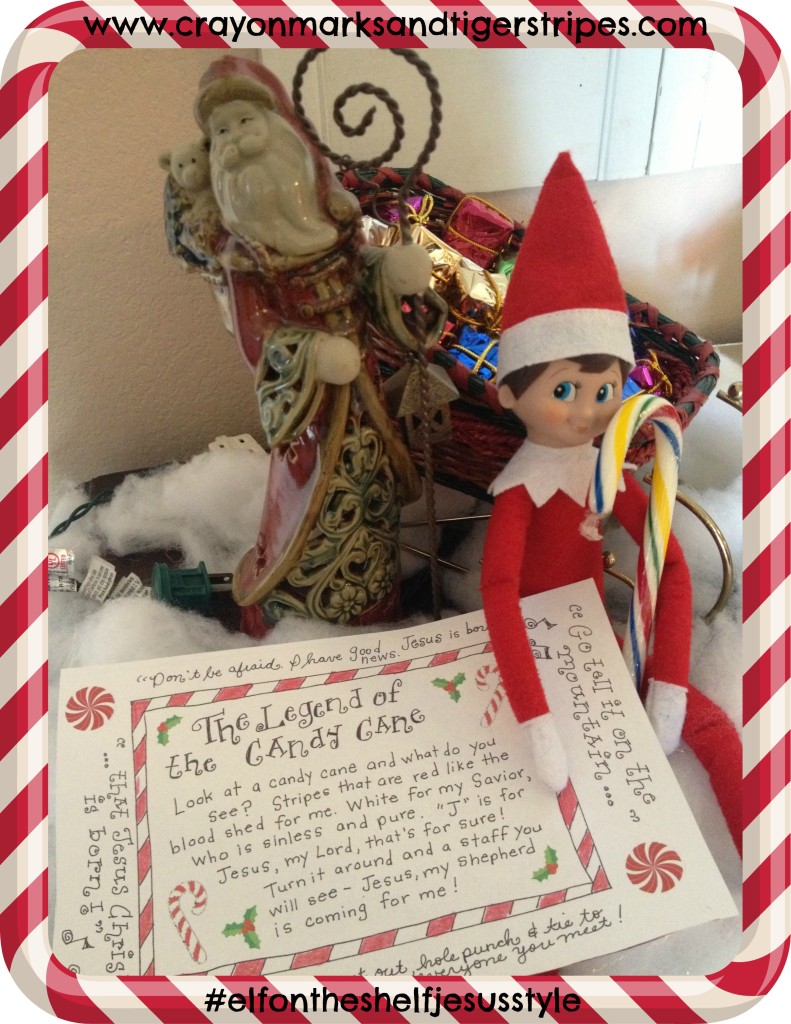 www.crayonmarksandtigerstripes.com
"Don't be afraid. I have good news. Jesus is
"Go tell it on the
mountain...
The Legend of
the Candy Cane
Look at a candy cane and what do you
see? Stripes that are red like the
blood shed for me. White for my Savior,
who is sinless and pure. "J" is for
Jesus, my Lord, that's for sure!
Turn it around and a staff you
will see - Jesus, my Shepherd
is coming for me!
"...that Jesus
is born!"
out, hole punch, & tie to
everyone you meet!
#elfontheshelfjesusstyle